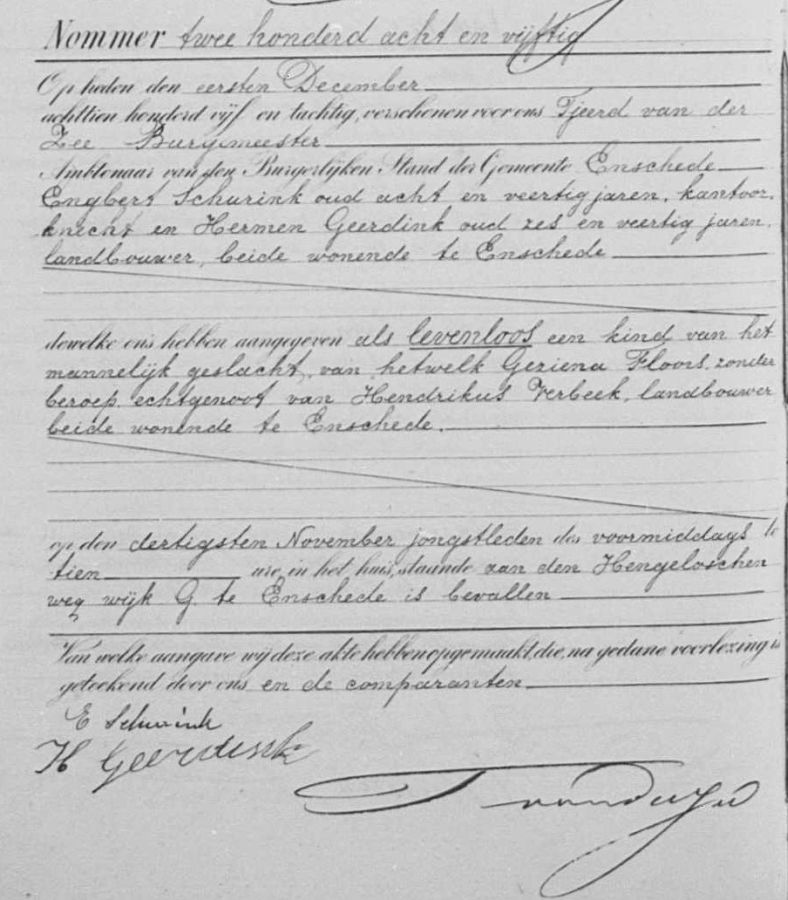 Nommer twee honderd acht en vijftig
Op heden den eersten December
achttien honderd vijf en tachtig, verschenen voor ons Tjeerd van der
Zee Burgemeester
Ambtenaar van den Burgerlijken Stand der Gemeente Enschede
Engbert Schurink oud acht en veertig jaren, kantoor-
knecht en Hermen Geerdink oud zes en veertig jaren,
landbouwer, beide wonende te Enschede
dewelke ons hebben aangegeven als levenloos een kind van het
mannelijk geslacht, van hetwelk Geziena Floors, zonder
beroep, echtgenoot van Hendrikus Verbeek, landbouwer
beide wonende te Enschede.
op den dertigsten November jongstleden des voormiddags te
tien ure, in het huis, staande aan den Hengeloschen
weg wijk G. te Enschede is bevallen
Van welke aangave wij deze akte hebben opgemaakt, die, na gedane voorlezing is
geteekend door ons en de comparanten
E Schurink
H Geerdink
T vanderZee